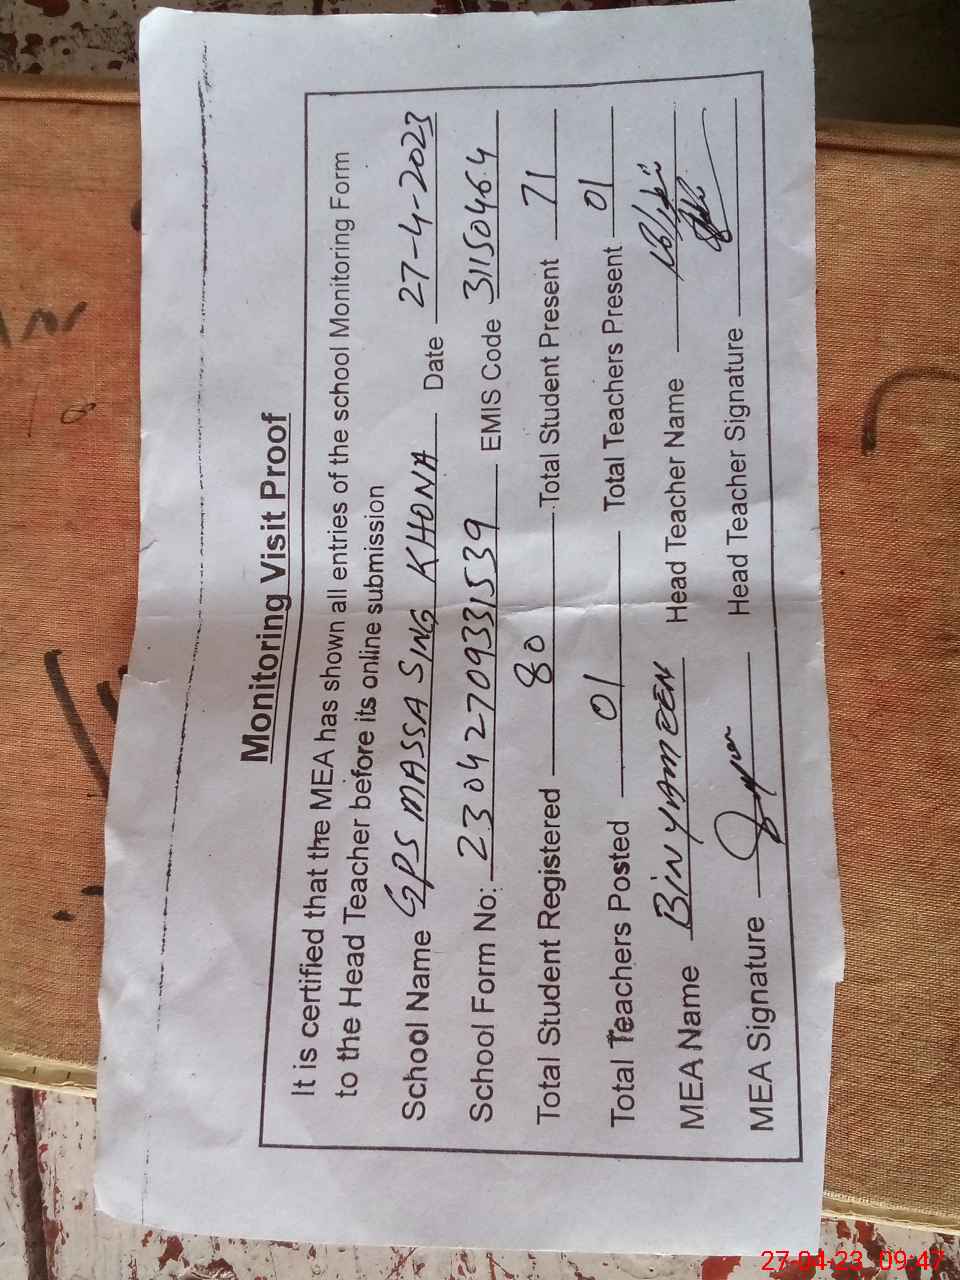 Monitoring Visit Proof
It is certified that the MEA has shown all entries of the school Monitoring Form
to the Head Teacher before its online submission
School Name GPS MASSA SING KHONA Date 27-4-2023
School Form No: 23042709331539 EMIS Code 31150464
Total Student Registered 80 Total Student Present 71
Total Teachers Posted 01 Total Teachers Present 01
MEA Name BINYAMEEN Head Teacher Name
MEA Signature Head Teacher Signature
27-04-23 09:47